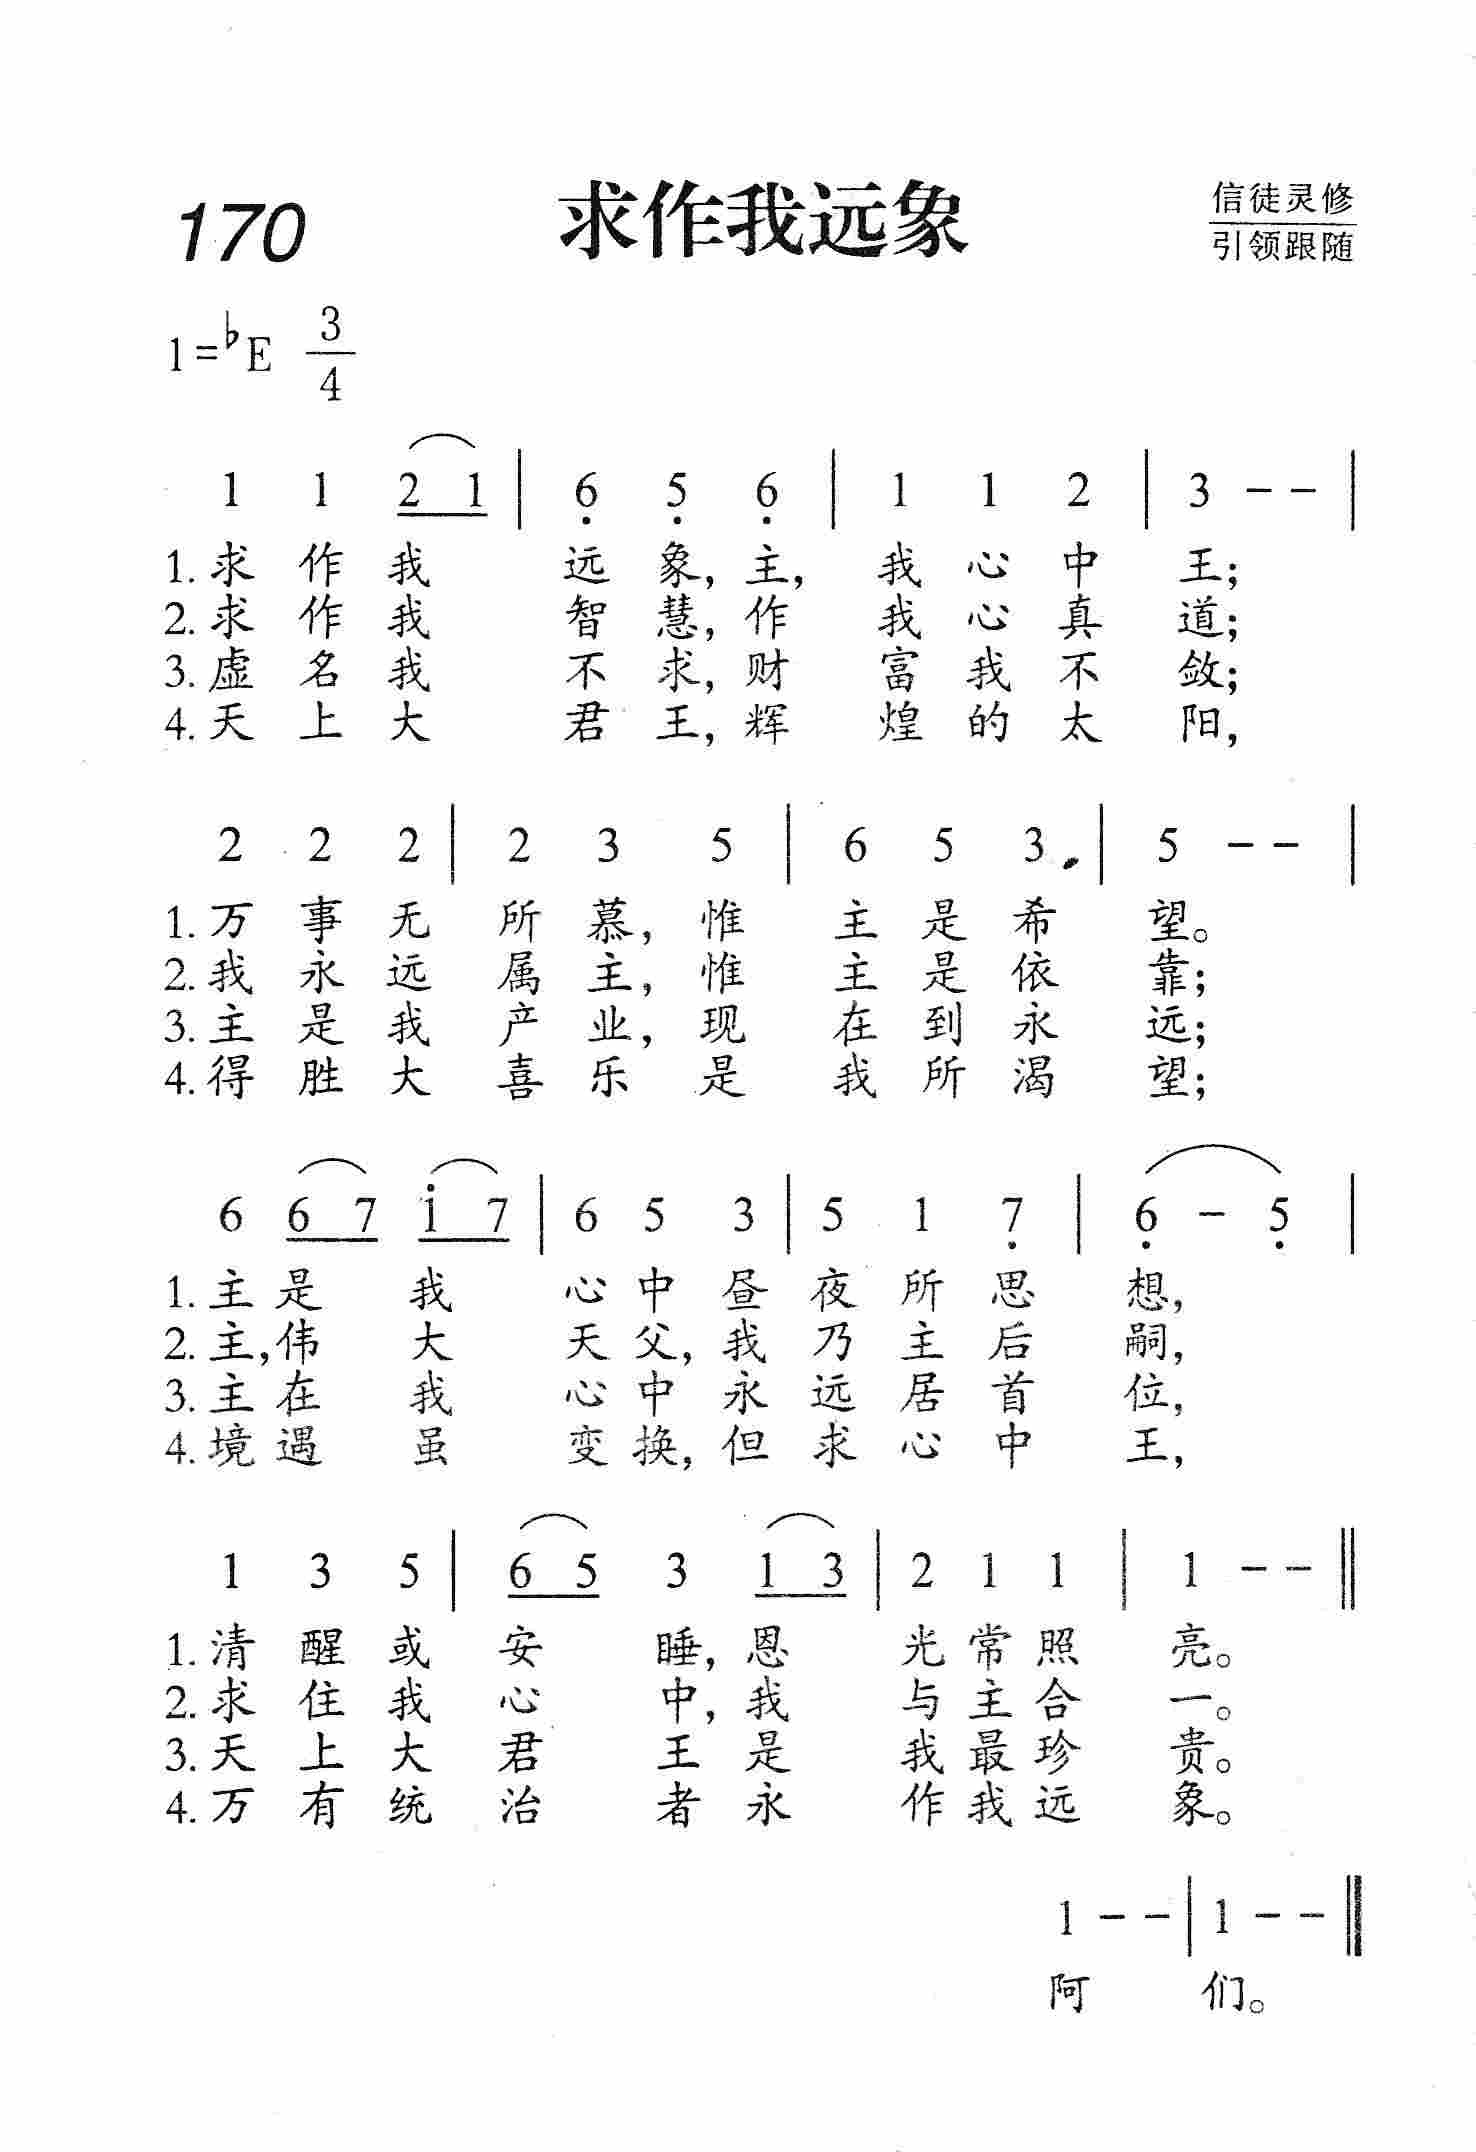 170 求作我远象 信徒灵修
引领跟随
1=♭E 3/4
1 1 2 1 | 6̣ 5̣ 6̣ | 1 1 2 | 3 - - |
1.求作我远象,主,我心中王;
2.求作我智慧,作我心真道;
3.虚名我不求,财富我不敛;
4.天上大君王,辉煌的太阳,
2 2 2 | 2 3 5 | 6 5 3 | 5 - - |
1.万事无所慕,惟主是希望。
2.我永远属主,惟主是依靠;
3.主是我产业,现在到永远;
4.得胜大喜乐是我所渴望;
6 6 7 i 7 | 6 5 3 | 5 1 7̣ | 6̣ - 5̣ |
1.主是我心中昼夜所思想,
2.主,伟大天父,我乃主后嗣,
3.主在我心中永远居首位,
4.境遇虽变换,但求心中王,
1 3 5 | 6 5 3 1 3 | 2 1 1 | 1 - - ‖
1.清醒或安睡,恩光常照亮。
2.求住我心中,我与主合一。
3.天上大君王是我最珍贵。
4.万有统治者永作我远象。
1 - - | 1 - - ‖
阿们。